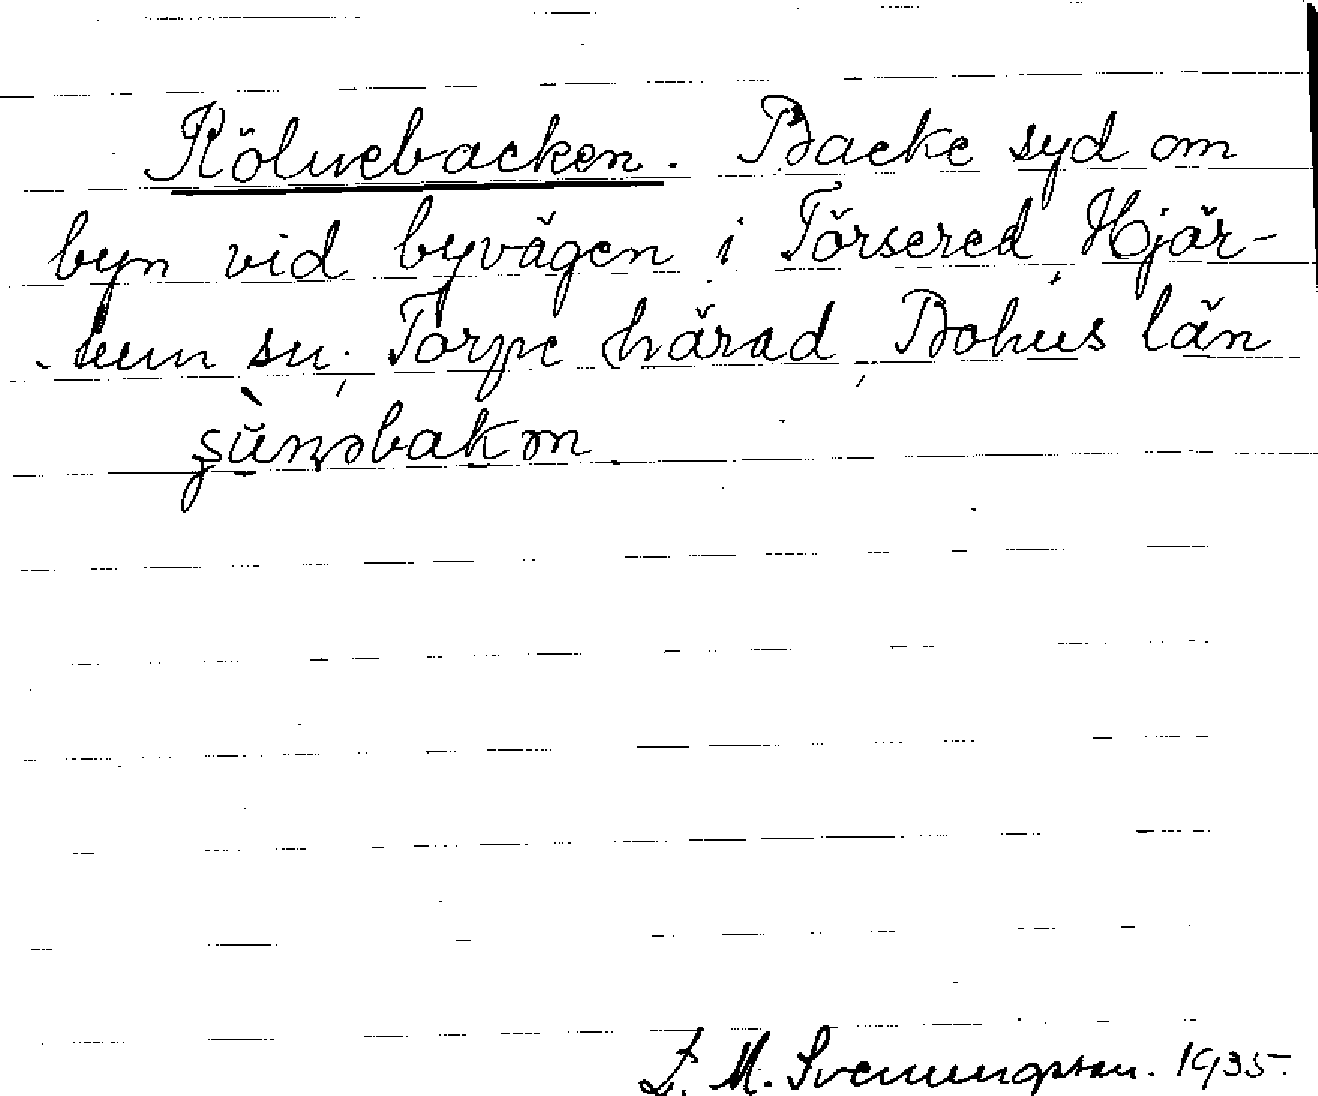 Kölnebacken. Backe syd om
byn vid byvägen i Törsered, Hjär-
tum sn, Torpe härad, Bohus län
J. M. Svenungsson. 1935.